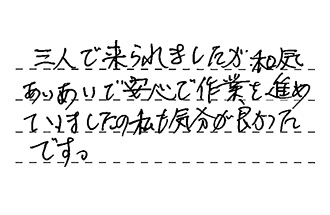 三人で来られましたが和気
あいあいで安心で作業を進め
ていましたの私も気分が良かった
です。